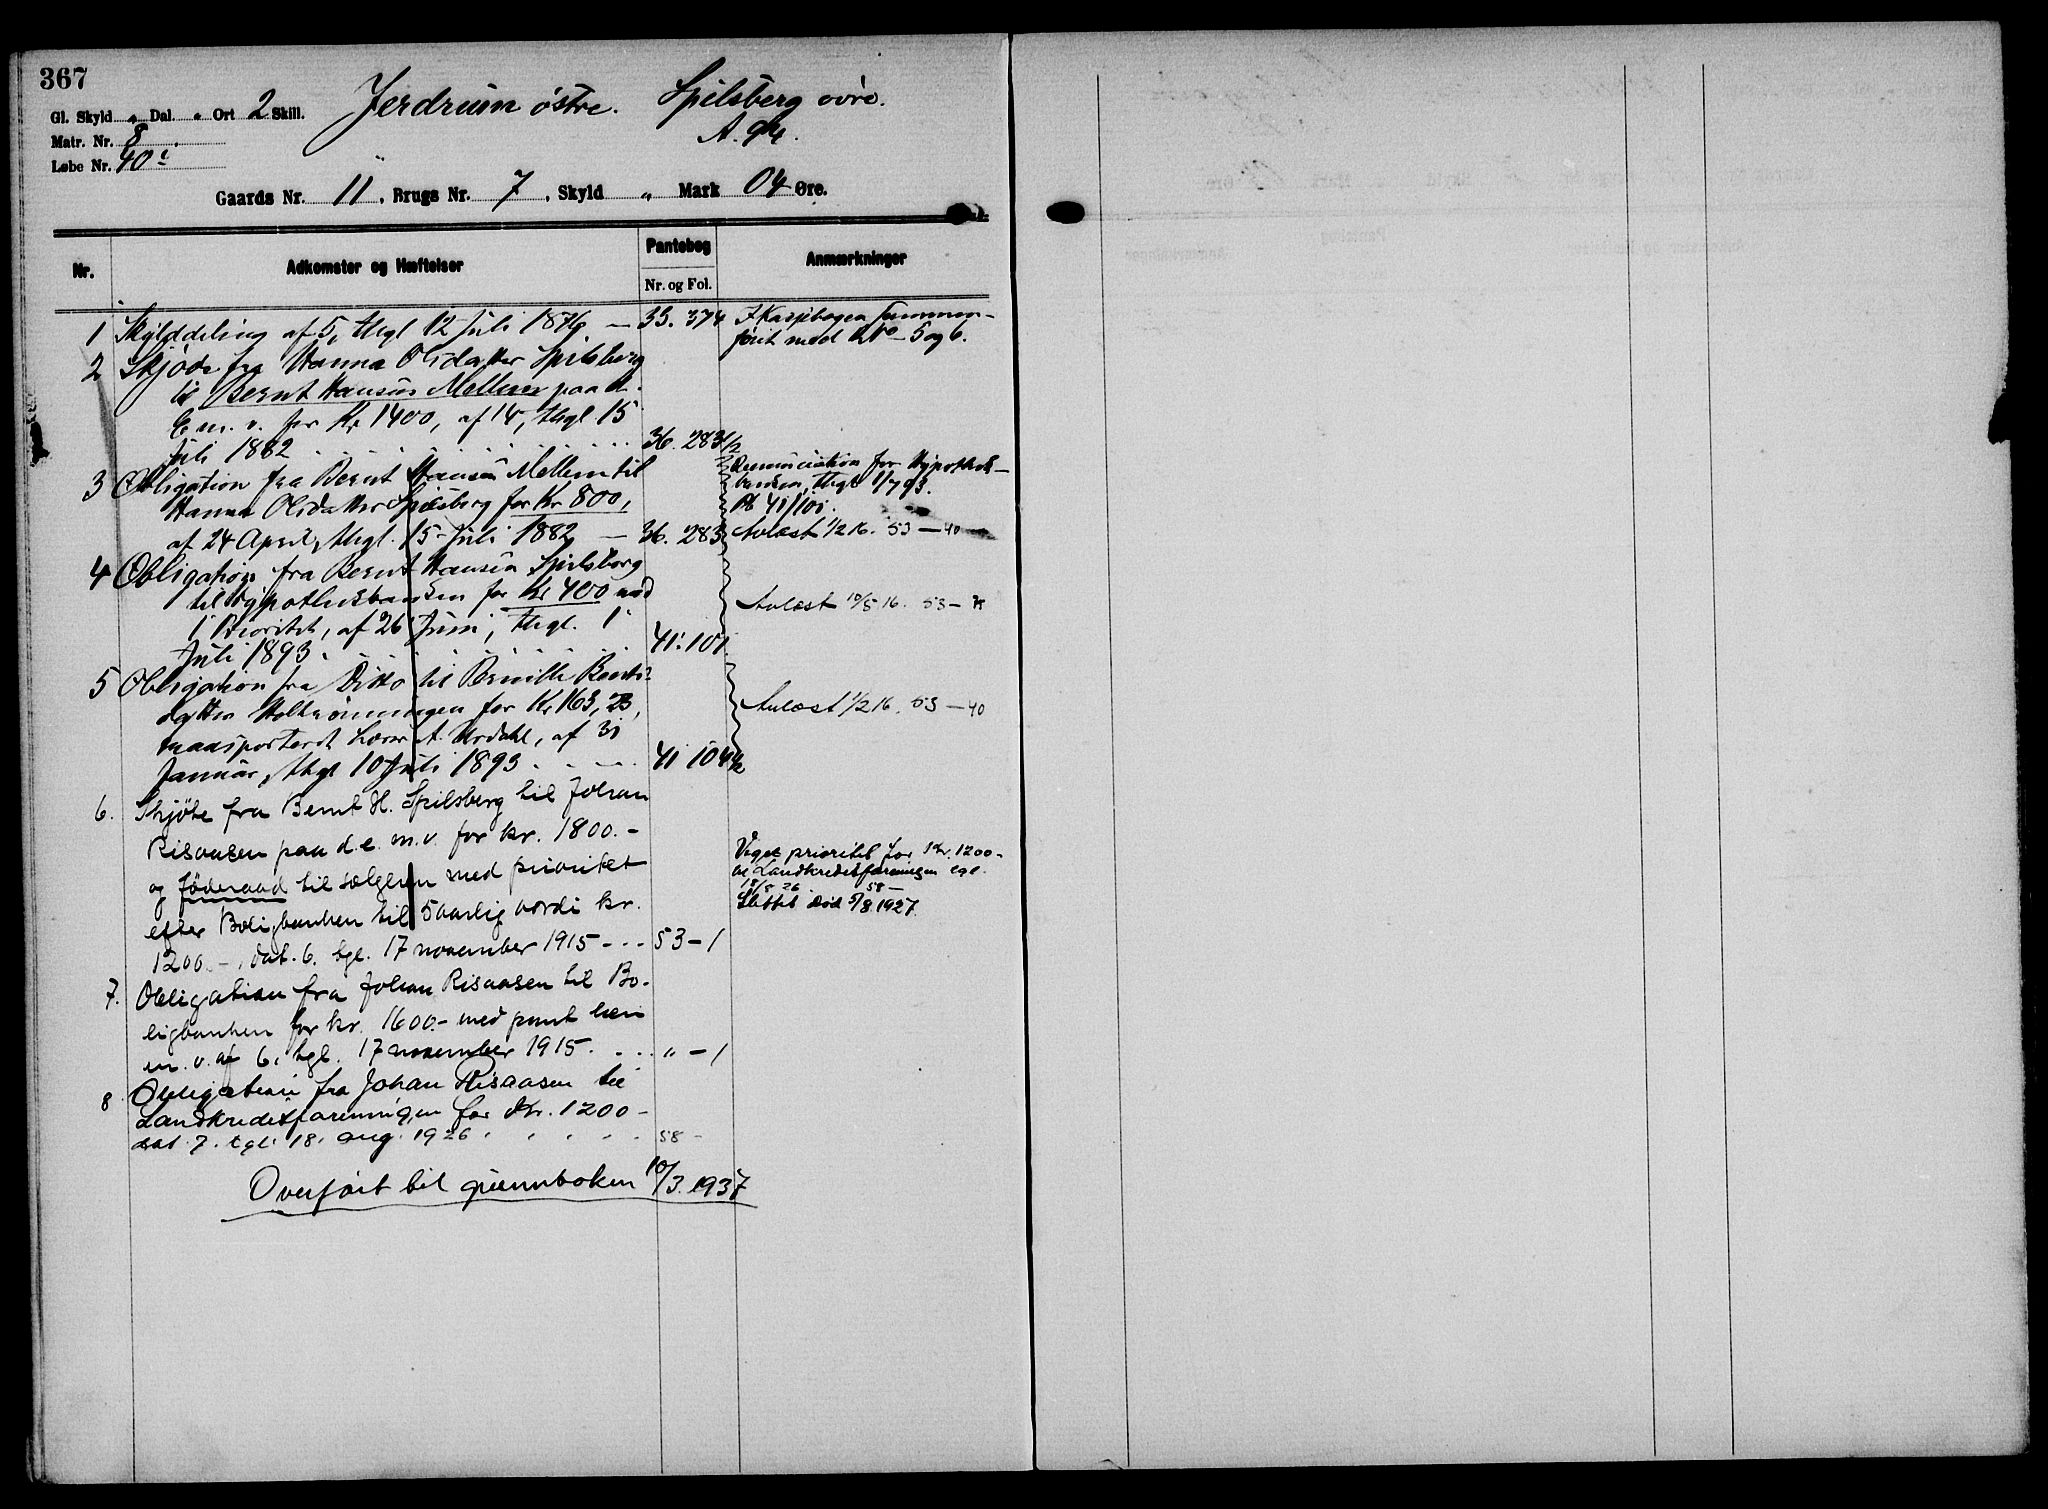 367
Gl. Skyld " Dal. " Ort 2 Skill.
Jerdrum østre. Spilsberg øvre.
Matr. Nr. 8
Løbe Nr. 40
Gaards Nr. 11, Brugs Nr. 7, Skyld " Mark 04 Øre.
Nr. Adkomster og Hæftelser Pantebog Nr. og Fol. Anmærkninger
1 Skylddeling af 5, thgl 12 Juli 1876 — 33. 374
med No 5 og 6.
2 Skjøde fra Hanna Olsdatter Spilsberg
til Bernt Hansen Mellem paa d.
E. m. v. for Kr 1400, af 14, thgl 15
Juli 1882 . . . . . . 36. 283/2
3 Obligation fra Bernt Hansen Mellem til
Hanna Olsdatter Spilsberg for Kr 800,
af 24 April, thgl. 15 Juli 1882 — 36. 283
Renunciation for Hypothek-
banken, thgl 1/7 93.
Pb 41/101.
Avlæst 1/2 16. 53 — 40
4 Obligation fra Bernt Hansen Spilsberg
til Hypothekbanken for Kr 400 mod
1 Prioritet, af 26 Juni, thgl. 1
Juli 1893 . . . . . . 41. 101.
Avlæst 10/5 16. 53 —
5 Obligation fra Ditto til Pernille Bernts-
datter for Kr 163, 23,
transporteret af 31
Januar, thgl 10 Juli 1893 . . . . 41 104/2
Avlæst 1/2 16. 53 — 40
6. Skjøte fra Bernt H. Spilsberg til Johan
Risaasen paa d.e. m.v. for kr. 1800.-
og føderaad til sælgeren med prioritet
efter Boligbanken til 5 aarlig værdi kr.
1200.-, dat. 6. tgl. 17 november 1915 - - - 53 - 1
Veget prioritet for Kr. 1200-
til Landkreditforeningen tgl.
18/8 26. 58 —
Slettet død 5/8 1927.
7. Obligation fra Johan Risaasen til Bo-
ligbanken for kr. 1600.- med pant heri
m. v. af 6, tgl. 17 november 1915. . . . " - 1
8. Obligation fra Johan Risaasen til
Landkreditforeningen for Kr. 1200-
dat. 7. tgl. 18. aug. 1926 . . . . . 58 -
Overført til grunnboken 10/3. 1937